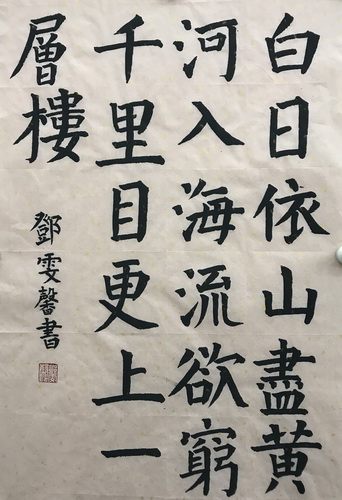 白日依山盡黄
河入海流欲窮
千里目更上一
層樓
鄧雯馨書